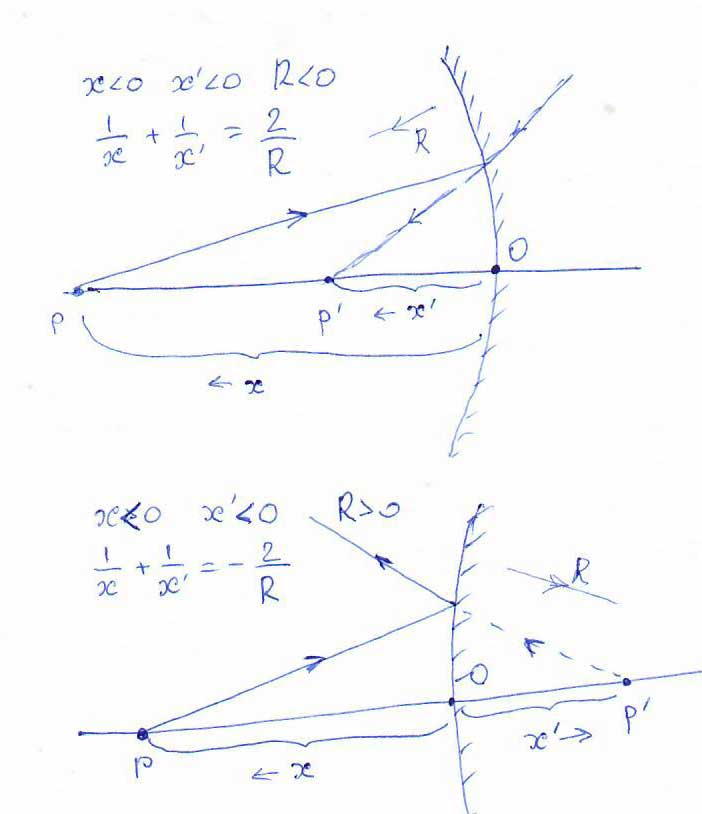 x<0 x'<0 R<0
1/x + 1/x' = 2/R
R
O
P P' ← x'
← x
x<0 x'<0 R>0
1/x + 1/x' = - 2/R
R
O
P ← x x' → P'